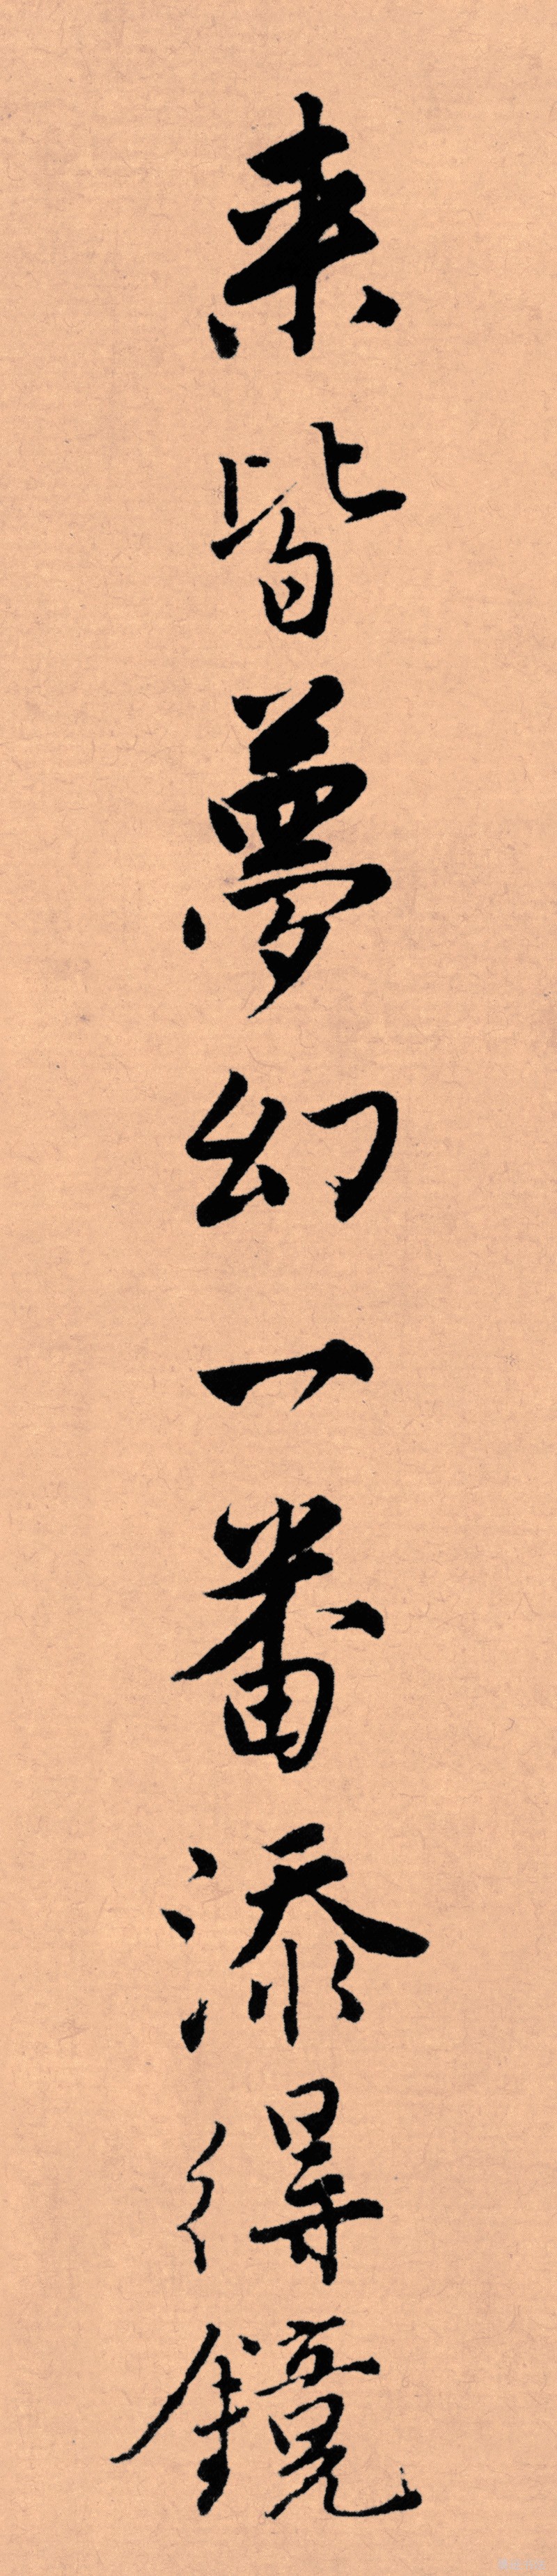 来皆夢幻一番添得鏡